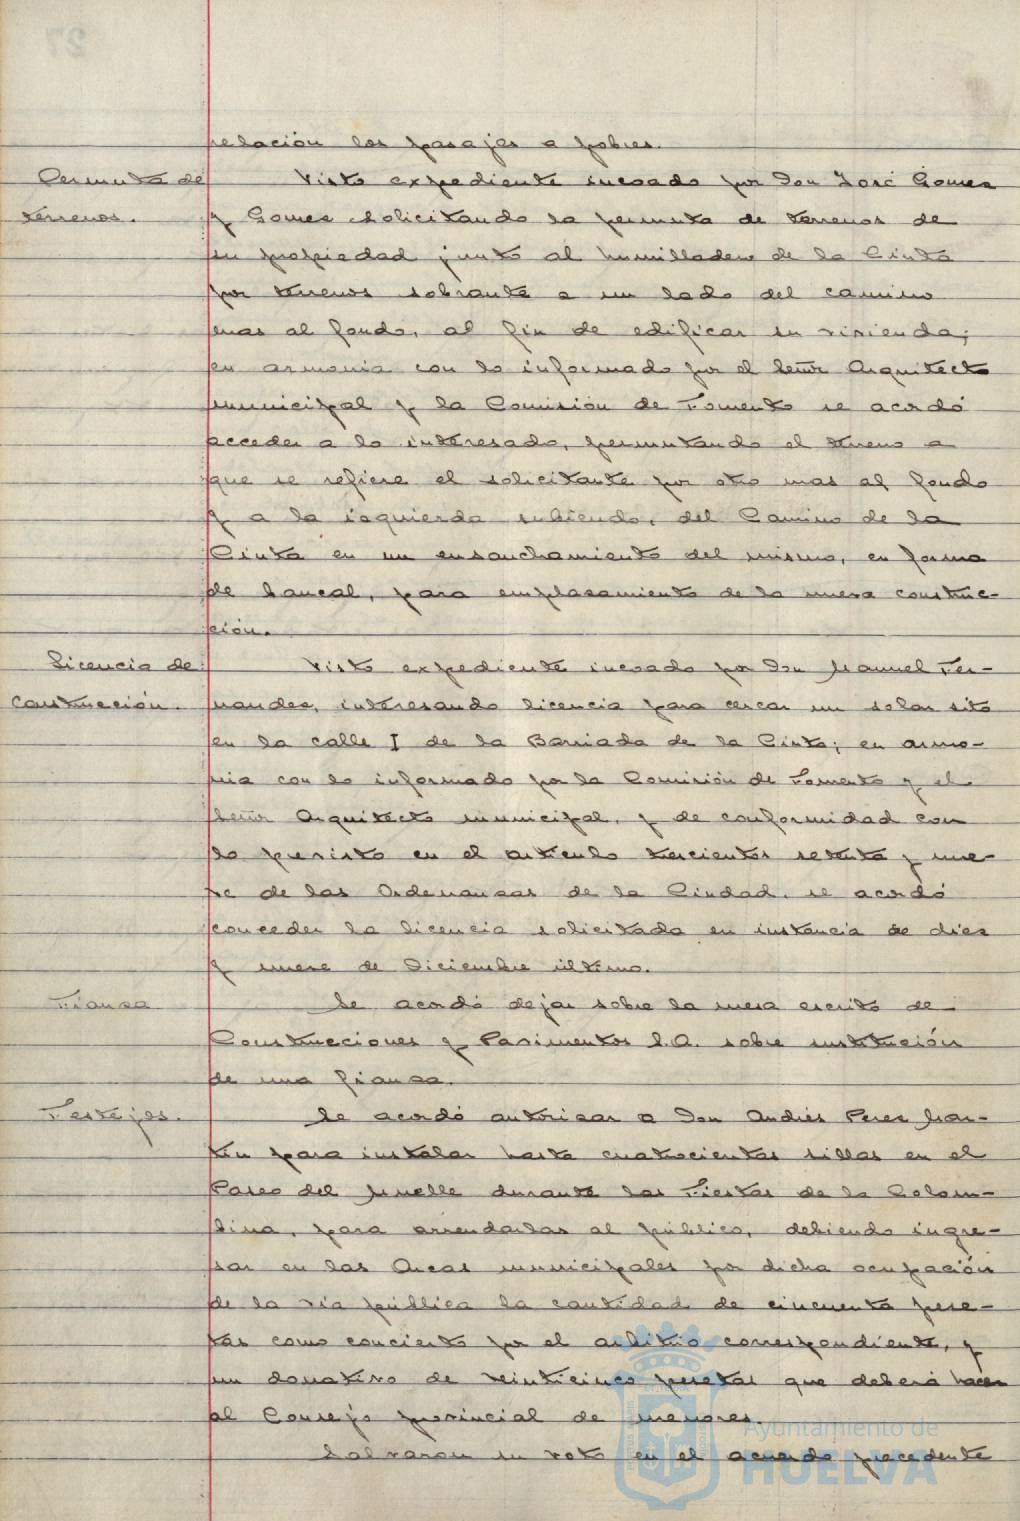 relación los pasajes a pobres.
Permuta de
terrenos.
Visto expediente incoado por Don José Gomez
y Gomez solicitando la permuta de terrenos de
su propiedad junto al humilladero de la Cinta
por terrenos sobrante a un lado del camino
mas al fondo, al fin de edificar su vivienda;
en armonia con lo informado por el Señor Arquitecto
municipal y la Comisión de Fomento se acordó
acceder a lo interesado, permutando el terreno a
que se refiere el solicitante por otro mas al fondo
y a la izquierda subiendo, del Camino de la
Cinta en un ensanchamiento del mismo, en forma
de bancal, para emplazamiento de la nueva construc-
ción.
Licencia de
construcción.
Visto expediente incoado por Don Manuel Fer-
nandez, interesando licencia para cercar un solar sito
en la calle I de la Barriada de la Cinta; en armo-
nia con lo informado por la Comisión de Fomento y el
Señor Arquitecto municipal, y de conformidad con
lo previsto en el articulo trescientos setenta y nue-
ve de las Ordenanzas de la Ciudad, se acordó
conceder la licencia solicitada en instancia de diez
y nueve de Diciembre último.
Fianza
Se acordó dejar sobre la mesa escrito de
Construcciones y Pavimentos S.A. sobre sustitución
de una fianza.
Festejos.
Se acordó autorizar a Don Andrés Perez Mar-
tín para instalar hasta cuatrocientas sillas en el
Paseo del Muelle durante las Fiestas de la Colom-
bina, para arrendarlas al público, debiendo ingre-
sar en las Arcas municipales por dicha ocupación
de la via pública la cantidad de cincuenta pese-
tas como concierto por el arbitrio correspondiente, y
un donativo de veinticinco pesetas que deberá hacer
al Consejo provincial de menores.
Salvaron su voto en el acuerdo precedente
Ayuntamiento de
HUELVA